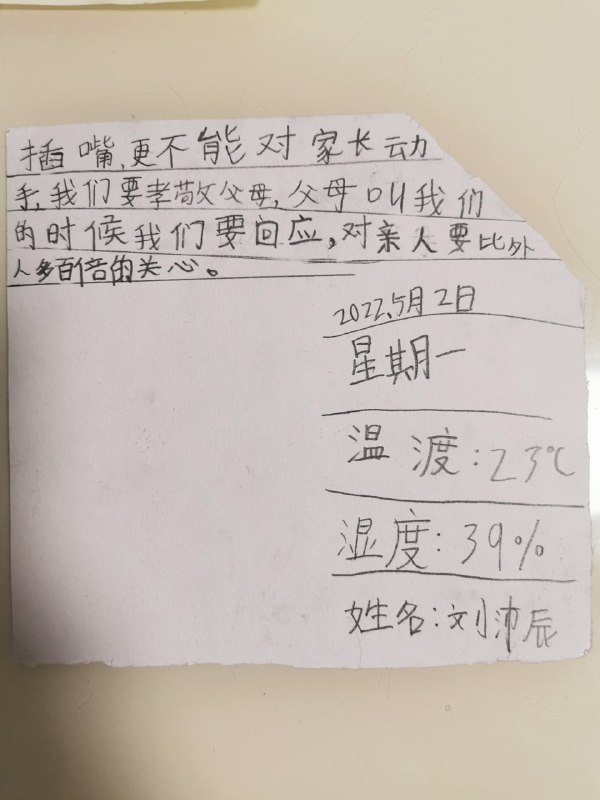 插嘴,更不能对家长动
手,我们要孝敬父母,父母叫我们
的时候我们要回应,对亲人要比外
人多百倍的关心。
2022.5月2日
星期一
温渡:23℃
湿度:39%
姓名:刘沛辰